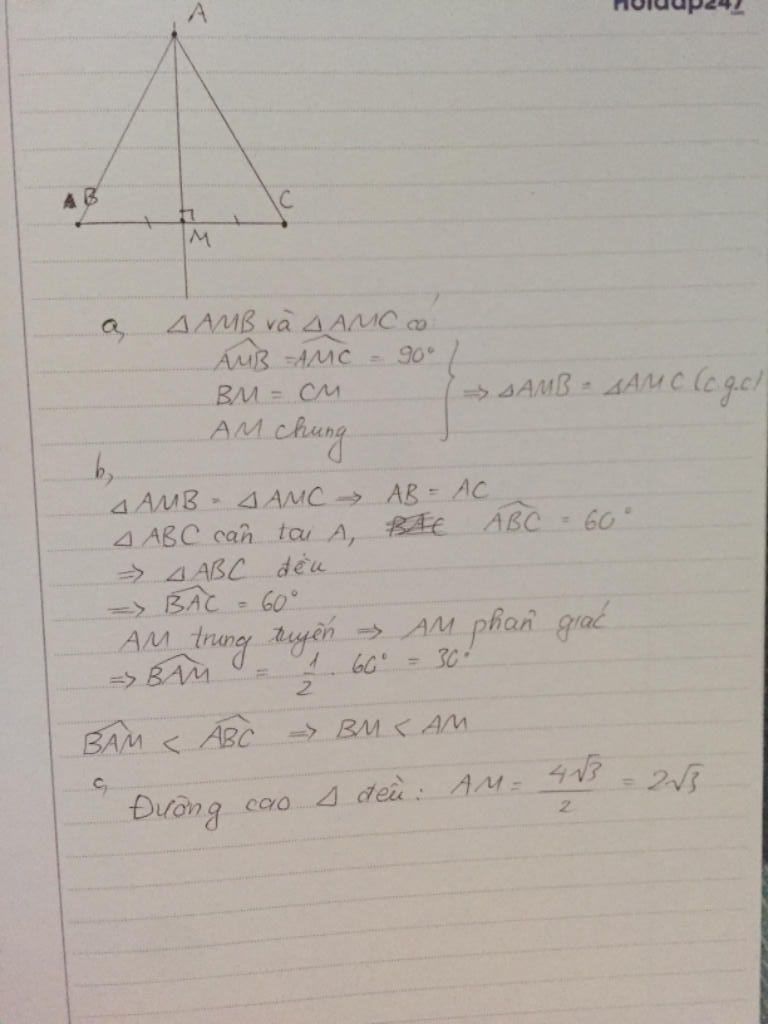 Hoidap247
A
B
C
M
a, △AMB và △AMC có
∠AMB = ∠AMC = 90°
BM = CM ⇒ △AMB = △AMC (c.g.c)
AM chung
b,
△AMB = △AMC ⇒ AB = AC
△ABC cân tại A, ∠ABC = 60°
⇒ △ABC đều
⇒ ∠BAC = 60°
AM trung tuyến ⇒ AM phân giác
⇒ ∠BAM = 1/2 . 60° = 30°
∠BAM < ∠ABC ⇒ BM < AM
c,
Đường cao △ đều: AM = 4√3/2 = 2√3